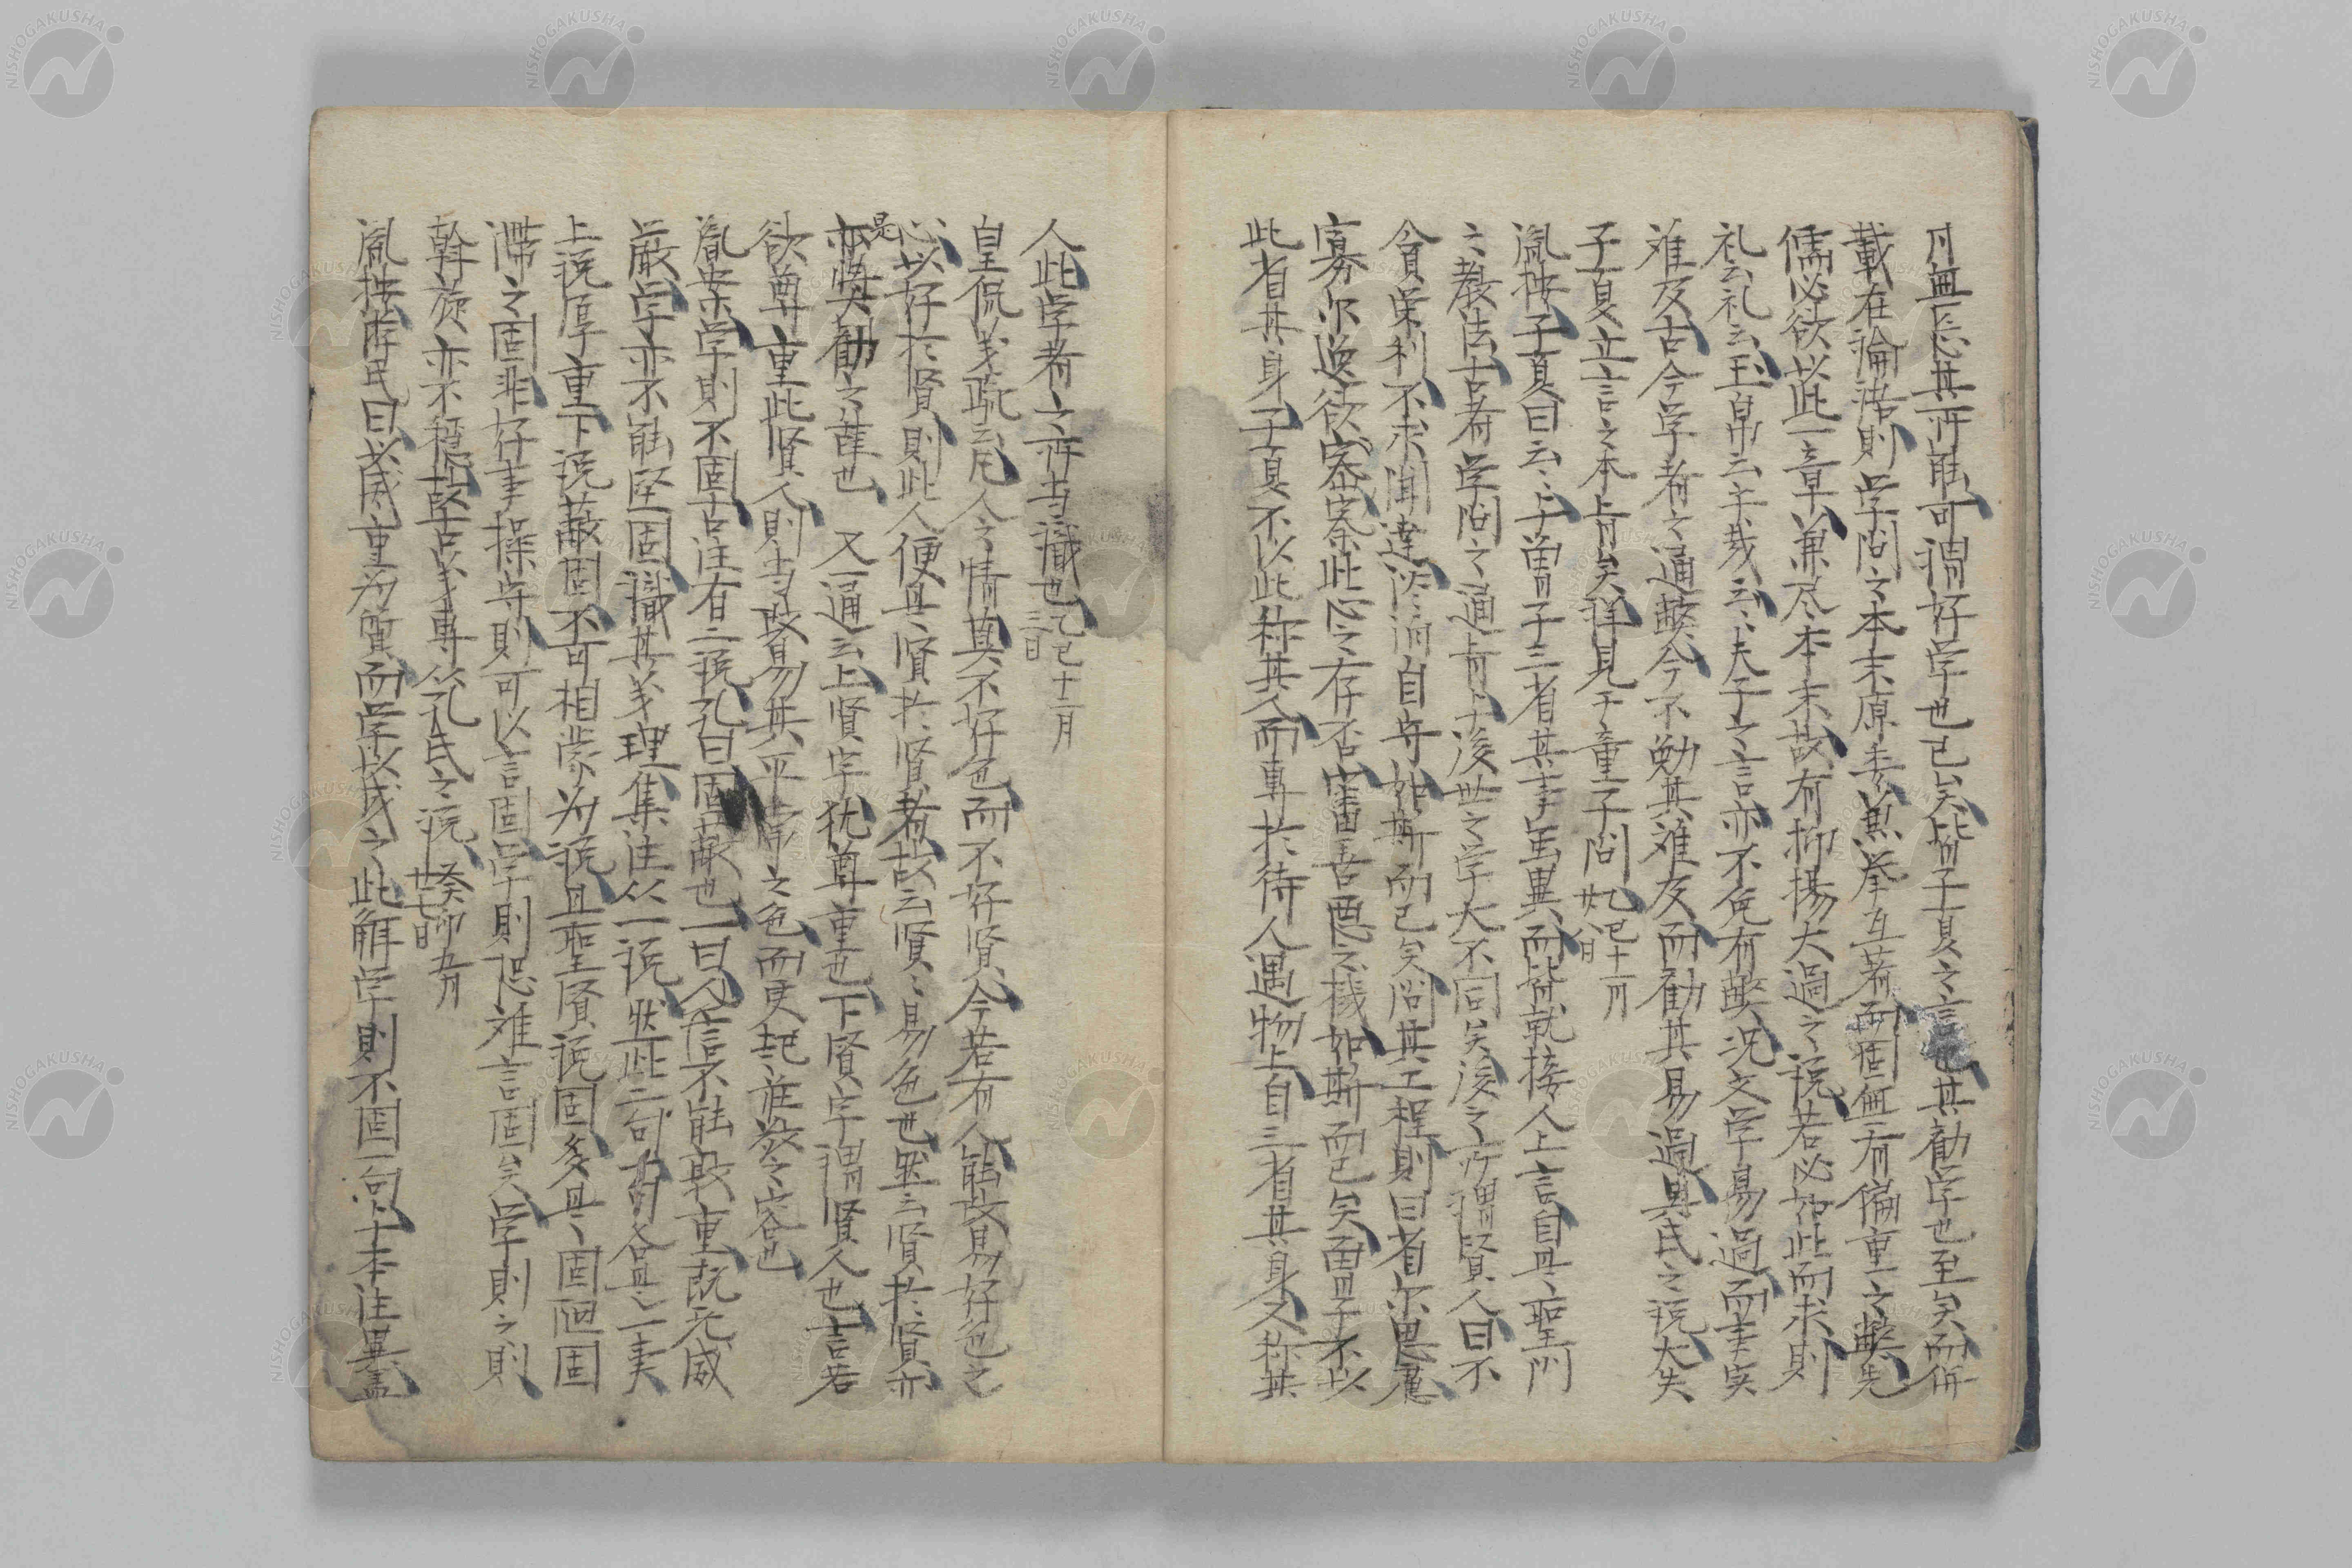 月無忘其所能可謂好学也已矣皆子夏之言也其勧学也至矣而併
載在論語則学問之本末原委兼挙互著而固無有偏重之弊先
儒必欲以此一章兼尽本末故有抑揚大過之説若必如此而求則
礼云礼云玉帛云乎哉云云夫子之言亦不免有弊況文学易過而事実
难及古今学者之通弊今不勉其难及而勧其易過呉氏之説大失
子夏立言之本旨矣詳見于童子問 己巳十一月廿八日
胤按子夏曰云云与曽子三省其事虽異而皆就接人上言自是聖門
之教法古者学問之通旨与後世之学大不同矣後之所謂賢人曰不
貪栄利不求聞達淡泊自守如斯而已矣問其工程則曰省尔思慮
寡尔逸欲密察此心之存否審善悪之機如斯而已矣曽子不以
此省其身子夏不以此称其人而専於待人遇物上自三省其身又称其
人此学者之所当識也 己巳十二月三日
皇侃義疏云凡人之情莫不好色而不好賢今若有人能改易好色之
心以好於賢則此人便是賢於賢者故云賢賢易色也然云賢於賢亦
是亦奨勧之辞也 又一通云上賢字犹尊重也下賢字謂賢人也言若
欲尊重此賢人則当改易其平常之色而更起荘敬之容也
胤案学則不固古注有二説孔曰固蔽也一曰人言不能敦重既无威
厳学亦不能堅固識其義理集注从一説然此二句本各是一事
上説厚重下説蔽固不可相蒙为説且聖賢説固多是固陋固
滞之固非好事操守則可以言固学則恐难言固矣学則之則
斡旋亦不穏当古義専从孔氏之説 癸卯五月廿七日
胤按陳氏曰以威重为質而学以成之此解学則不固一句与本注異盖